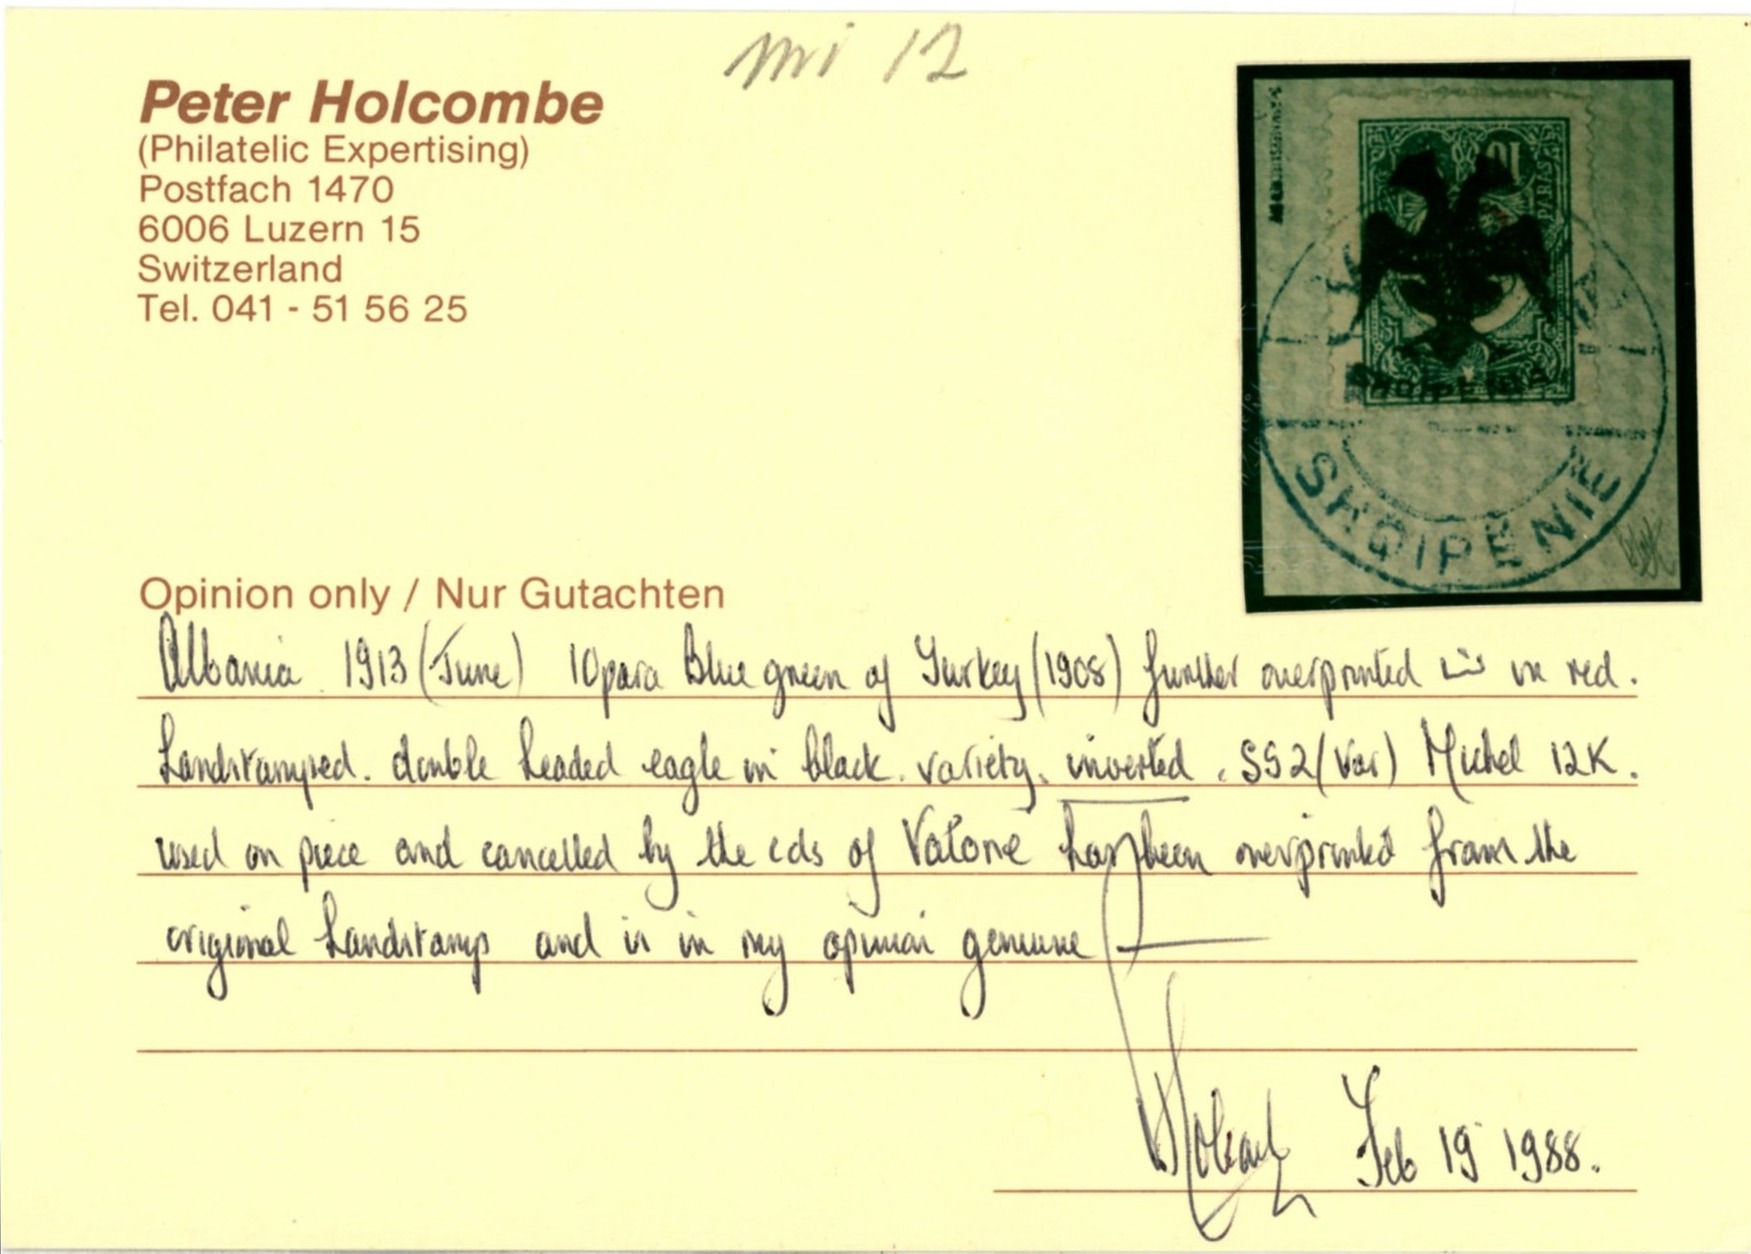 mi 12
Peter Holcombe
(Philatelic Expertising)
Postfach 1470
6006 Luzern 15
Switzerland
Tel. 041 - 51 56 25
10
PARAS
SHQIPENIA
SHQIPËNIË
Opinion only / Nur Gutachten
Albania 1913 (June) 10para Blue green of Turkey (1908) further overprinted in red.
handstamped. double headed eagle in black. variety. inverted. SG2 (Var) Michel 12K.
used on piece and cancelled by the cds of Valone has been overprinted from the
original handstamp and is in my opinion genuine
Holcombe Feb 19 1988.